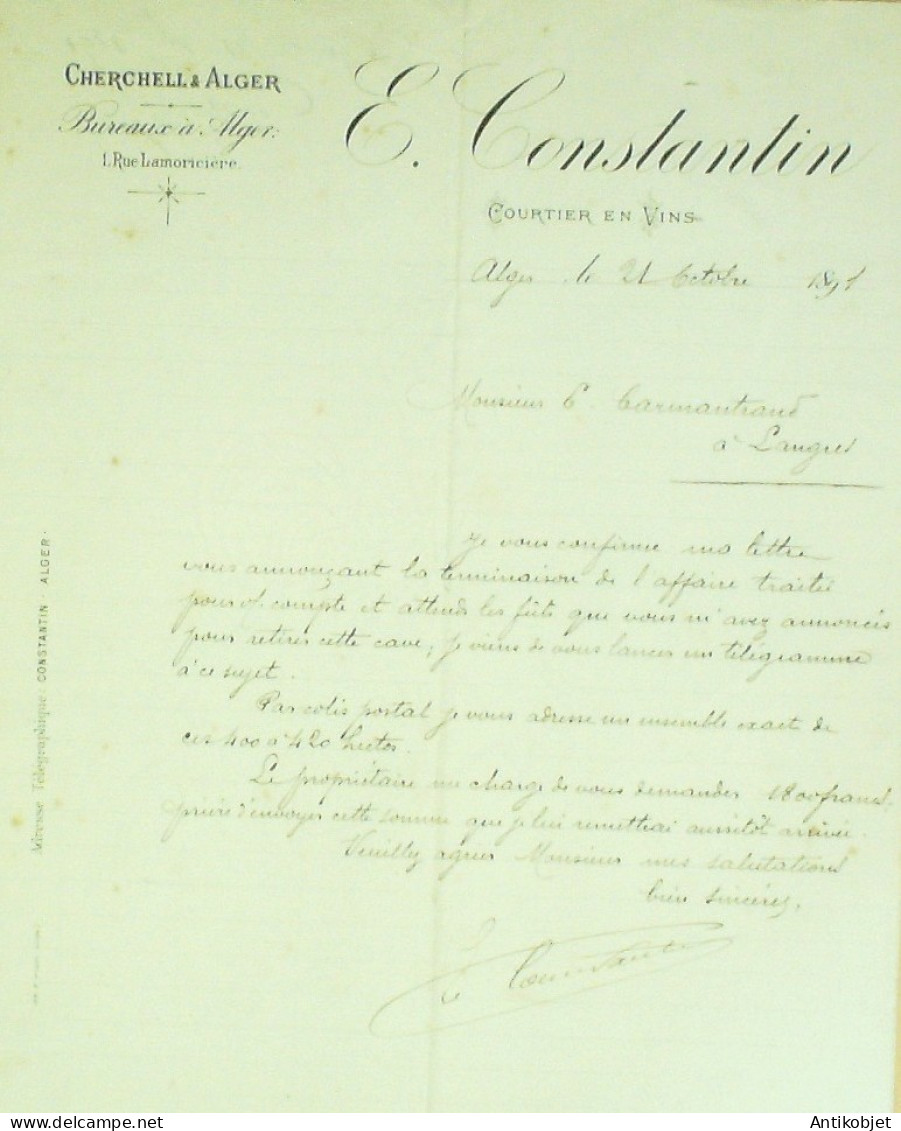 CHERCHELL & ALGER
Bureaux à Alger:
1, Rue Lamoricière.
E. Constantin
COURTIER EN VINS
Alger le 21 Octobre 1891
Monsieur C. Carmantrand
à Langres
Je vous confirme ma lettre
vous annonçant la terminaison de l'affaire traitée
pour vt compte et attends les fûts que vous m'avez annoncés
pour retirer cette cave, je viens de vous lancer un télégramme
à ce sujet.
Par colis postal je vous adresse un ensemble exact de
ces 400 à 420 hectos.
Le propriétaire me charge de vous demander 1800 francs
prière d'envoyer cette somme que je lui remettrai aussitôt arrivée.
Veuillez agréer Monsieur mes salutations
bien sincères,
E Constantin
Adresse Télégraphique: CONSTANTIN - ALGER.
Antikobjet